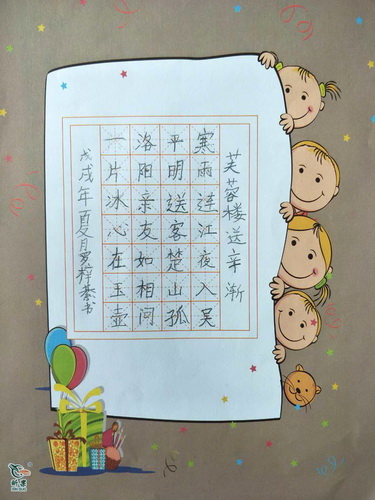 芙蓉楼送辛渐
寒雨连江夜入吴
平明送客楚山孤
洛阳亲友如相问
一片冰心在玉壶
戊戌年夏月罗梓綦书